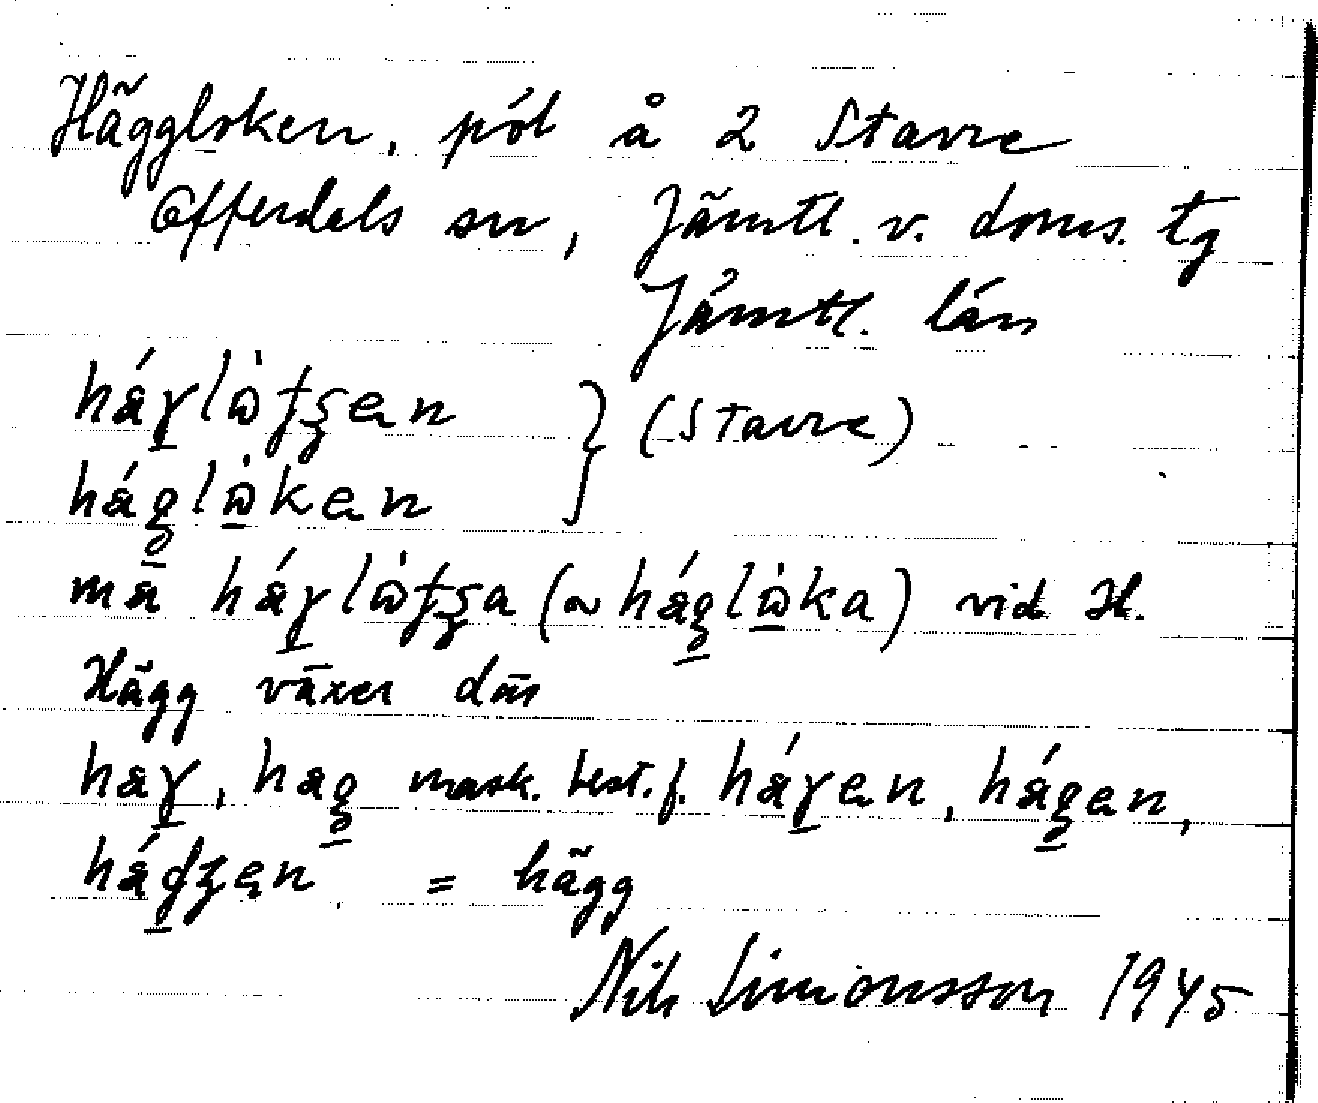 Häggloken, pöl å 2 Stavre
Offerdals sn, Jämtl. v. doms. tg
Jämtl. län
háɣlòfʒen } (Stavre)
háglòken
mä háɣlòfʒa (~ háglòka) vid H.
Hägg växer där
haɣ, hag mask. best. f. háɣen, hágen,
hádʒen = hägg
Nils Simonsson 1945